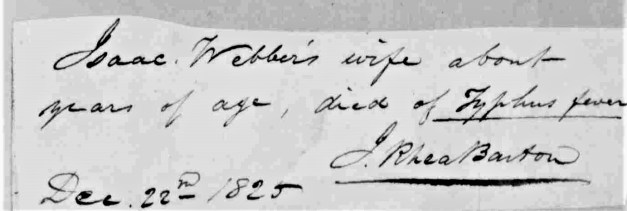 Isaac. Webber's wife about
years of age, died of Typhus fever
J. Rhea Barton
Dec. 22nd 1825